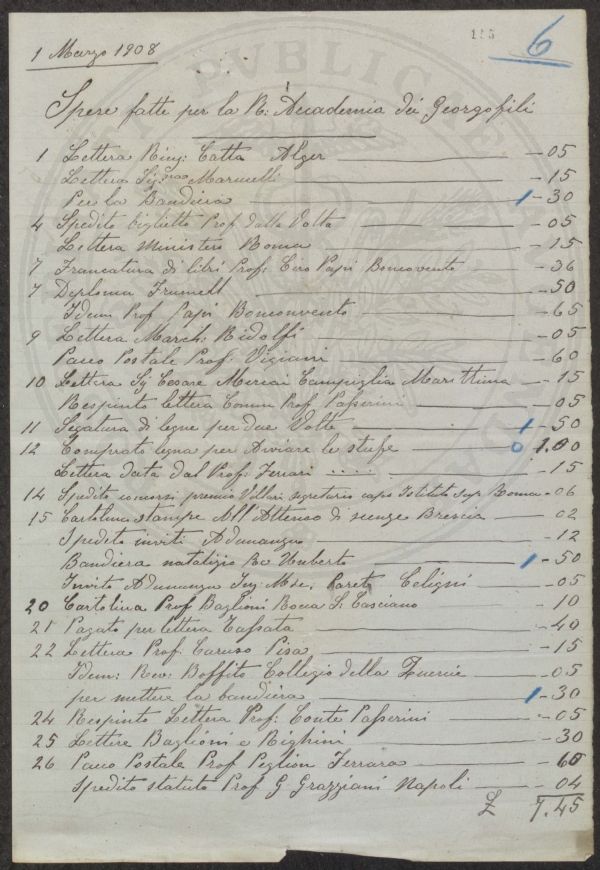 1 Marzo 1908
115
6
Spese fatte per la R: Accademia dei Georgofili
1 Lettera Rieg: Catta Alger — 05
Lettera Sig:ra Marucelli — 15
Per la Bandiera 1 — 30
4 Spedito biglietto Prof dalla Volta — 05
Lettera Ministero Roma — 15
7 Francatura di libri Prof: Ciro Papi Bonconvento — 36
7 Diploma — 50
Idem Prof Papi Bonconvento — 65
9 Lettera March: Ridolfi — 05
Pacco Postale Prof. Vigiani — 60
10 Lettera Sig Cesare Campiglia Marittima — 15
Respinto lettera Comm Prof Passerini — 05
11 Segatura di legne per due Volte 1 — 50
12 Comprato legna per Avviare le stufe 0 1.00
Lettera data dal Prof: Ferrari ..... — 15
14 Spedito premio Villari segretario capo Istituto Sup Roma 06
15 Cartolina stampe All'Atteneo di scienze Brescia — 02
Spedito inviti Adunanza — 12
Bandiera natalizio Re Umberto 1 — 50
Invito Adunanza Ing: Mse, Pareto Celigni — 05
20 Cartolina Prof Baglioni Rocca S. Casciano — 10
21 Pagato per lettera Tassata — 40
22 Lettera Prof. Caruso Pisa — 15
Idem: Rev: Boffito Collegio della Querce — 05
per mettere la bandiera 1 — 30
24 Respinto Lettera Prof: Conte Passerini — 05
25 Lettere Baglioni e Righini — 30
26 Pacco Postale Prof Peglion Ferrara — 60
Spedito statuto Prof G Grazziani Napoli — 04
£ 7.45